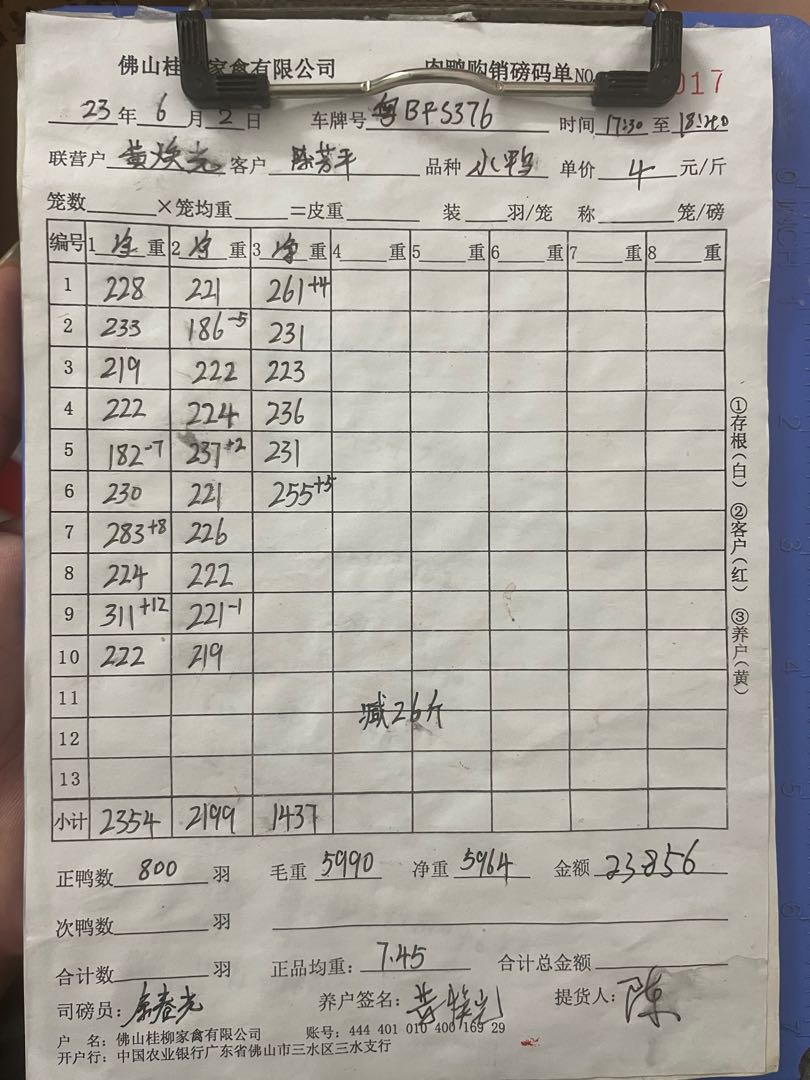 佛山桂柳家禽有限公司 肉鸭购销磅码单NO 017
23年6月2日 车牌号粤BFS376 时间17:30至18:40
联营户黄焕光客户陈芳平 品种水鸭 单价4元/斤
笼数______×笼均重______=皮重______ 装____羽/笼 称______笼/磅
编号 1净重 2净重 3净重 4重 5重 6重 7重 8重
1 228 221 261+4
2 233 186-5 231
3 219 222 223
4 222 224 236
5 182-7 237+2 231
6 230 221 255+5
7 283+8 226
8 224 222
9 311+12 221-1
10 222 219
11
减26斤
12
13
小计 2354 2199 1437
正鸭数800羽 毛重5990 净重5964 金额23856
次鸭数______羽
合计数______羽 正品均重:7.45 合计总金额______
司磅员: 养户签名:黄焕光 提货人:陈
户 名:佛山桂柳家禽有限公司 账号:444 401 010 400 169 29
开户行:中国农业银行广东省佛山市三水区三水支行
①存根(白) ②客户(红) ③养户(黄)